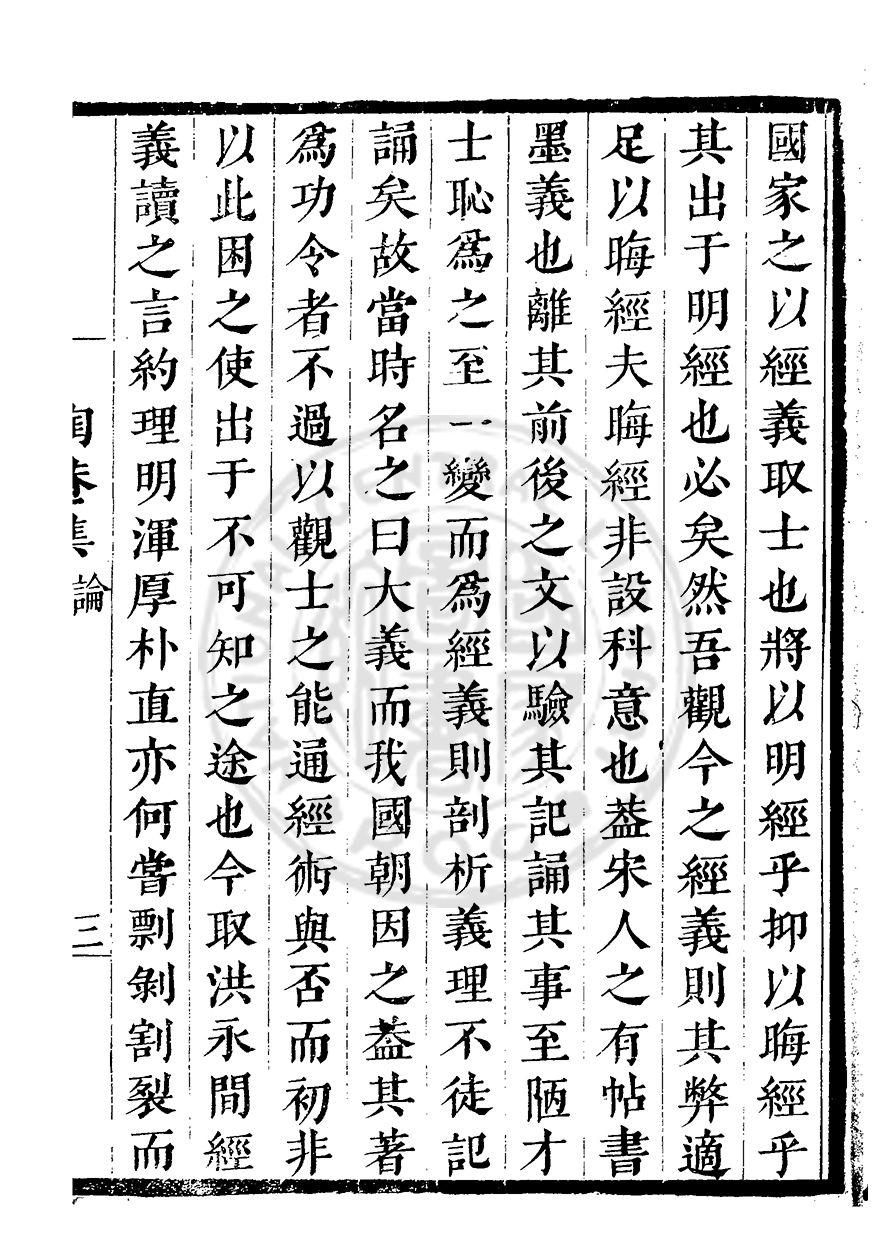 國家之以經義取士也將以明經乎抑以晦經乎
其出于明經也必矣然吾觀今之經義則其弊適
足以晦經夫晦經非設科意也葢宋人之有帖書
墨義也離其前後之文以驗其記誦其事至陋才
士恥爲之至一變而爲經義則剖析義理不徒記
誦矣故當時名之曰大義而我國朝因之葢其著
爲功令者不過以觀士之能通經術與否而初非
以此困之使出于不可知之途也今取洪永間經
義讀之言約理明渾厚朴直亦何嘗剽剝割裂而
陶菴集 論 三